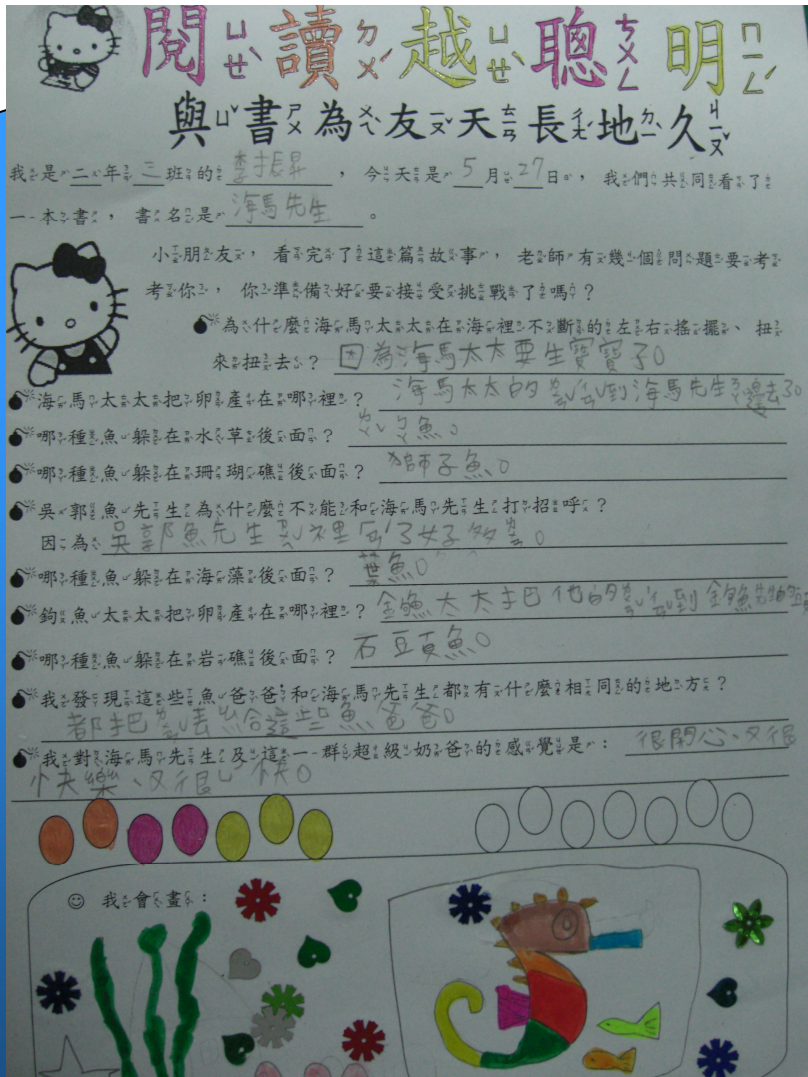 閱讀越聰明
與書為友天長地久
我是二年三班的李振昇，今天是5月27日，我們共同看了
一本書，書名是海馬先生。
小朋友，看完了這篇故事，老師有幾個問題要考
考你，你準備好要接受挑戰了嗎？
為什麼海馬太太在海裡不斷的左右搖擺、扭
來扭去？因為海馬太太要生寶寶了。
海馬太太把卵產在哪裡？海馬太太的ㄌㄨㄢˇ 到海馬先生 邊去了。
哪種魚躲在水草後面？ 魚。
哪種魚躲在珊瑚礁後面？獅子魚。
吳郭魚先生為什麼不能和海馬先生打招呼？
因為吳郭魚先生 裡 了好多 。
哪種魚躲在海藻後面？葉魚。
鉤魚太太把卵產在哪裡？ 魚太太把他的 到 魚先
哪種魚躲在岩礁後面？石頭魚。
我發現這些魚爸爸，和海馬先生都有什麼相同的地方？
都把 丟給這些魚爸爸。
我對海馬先生及這一群超級奶爸的感覺是：很開心、又很
快樂、又很 快。
我會畫：